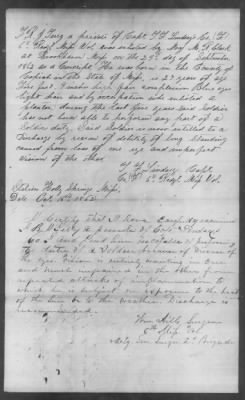 a private of Capt. T. J. Lindsey Co. (F)
6th Regt Miss Vol. was enlisted by Maj. M. R. Clark
at Brookhaven Miss on the 25th day of September
1862 as Conscript. He was born in the County of
Copiah in the State of Miss. is 23 years of age
Six feet inches high fair complexion Blue eyes
light hair and by occupation when enlisted a
during the last four years said Soldier
has not been able to perform any part of a
Soldiers duty. Said Soldier is now entitled to a
discharge by reason of debility of long standing
caused from loss of one eye and imperfect
vision of the other
T. J. Lindsey Capt
Co. F 6th Regt Miss Vol
Station Holly Springs Miss.
Date Oct. 16th 1862
I Certify that I have carefully examined
a private of Capt Lindsey
Co. and find him incapable of performing
the duties of a Soldier because of disease of
the eyes. Vision is entirely wanting in one
and much impaired in the other from
repeated attacks of inflammation to
which he is subject on exposure to the heat
of the Sun or to the weather. Discharge is
recommended.
Wm Hill, Surgeon
6th Miss. Vol
Actg Sen Surgn 2d Brigade